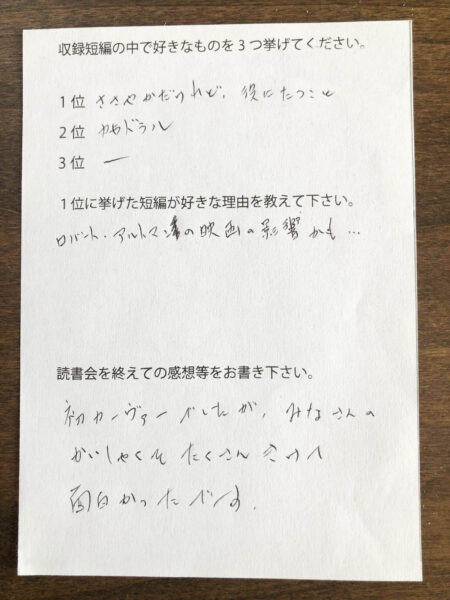 収録短編の中で好きなものを3つ挙げてください。
1位 ささやかだけれど、役にたつこと
2位 カセドラル
3位 ー
1位に挙げた短編が好きな理由を教えて下さい。
ロバート・アルトマンの映画の影響かも…
読書会を終えての感想等をお書き下さい。
初カーヴァーでしたが、みなさんの
かいしゃくもたくさんきけて
面白かったです。